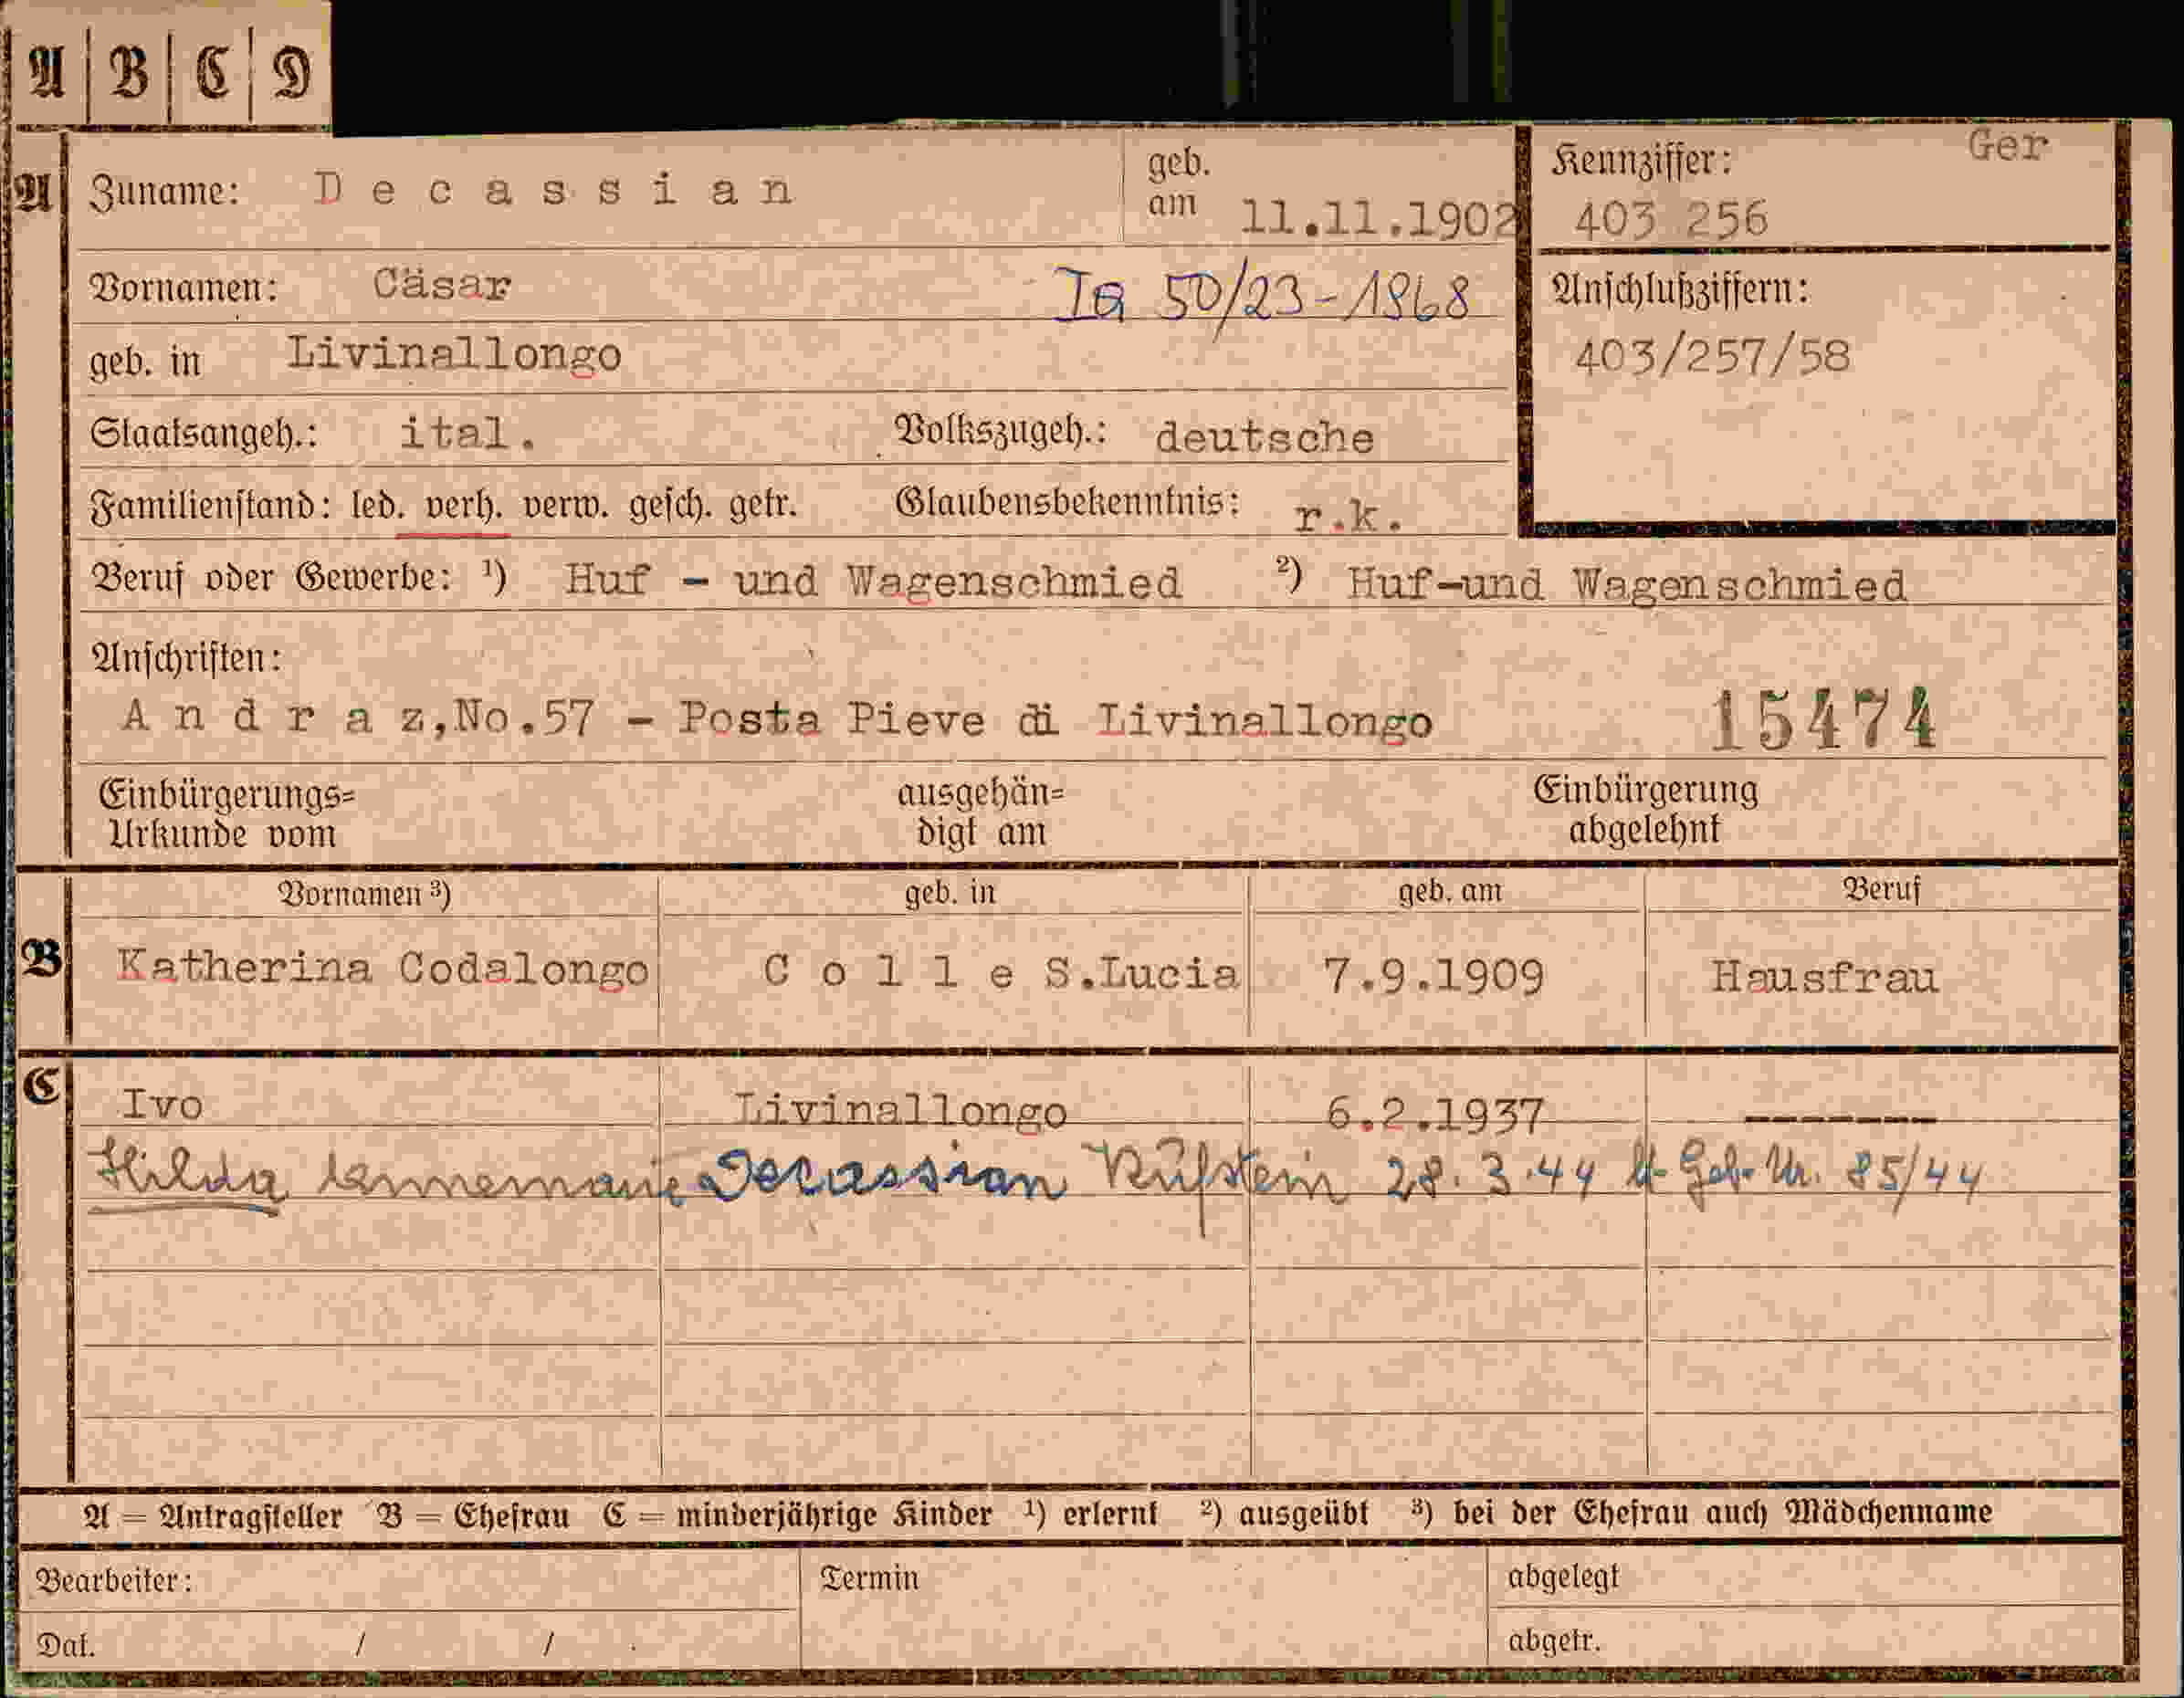 A | B | C | D
A Zuname: Decassian geb. am 11.11.1902 Kennziffer: Ger
403 256
Vornamen: Cäsar Ia 50/23-1968 Anschlußziffern:
geb. in Livinallongo 403/257/58
Staatsangeh.: ital. Volkszugeh.: deutsche
Familienstand: led. verh. verw. gesch. getr. Glaubensbekenntnis: r.k.
Beruf oder Gewerbe: ¹) Huf - und Wagenschmied ²) Huf-und Wagenschmied
Anschriften:
Andraz, No.57 - Posta Pieve di Livinallongo 15474
Einbürgerungs= ausgehän= Einbürgerung
Urkunde vom digt am abgelehnt
Vornamen ³) geb. in geb. am Beruf
B Katherina Codalongo Colle S.Lucia 7.9.1909 Hausfrau
C Ivo Livinallongo 6.2.1937 -------
Hilda Annemarie Decassian Kufstein 28.3.44 Geb. Nr. 85/44
A = Antragsteller B = Ehefrau C = minderjährige Kinder ¹) erlernt ²) ausgeübt ³) bei der Ehefrau auch Mädchenname
Bearbeiter: Termin abgelegt
Dat. / / abgetr.